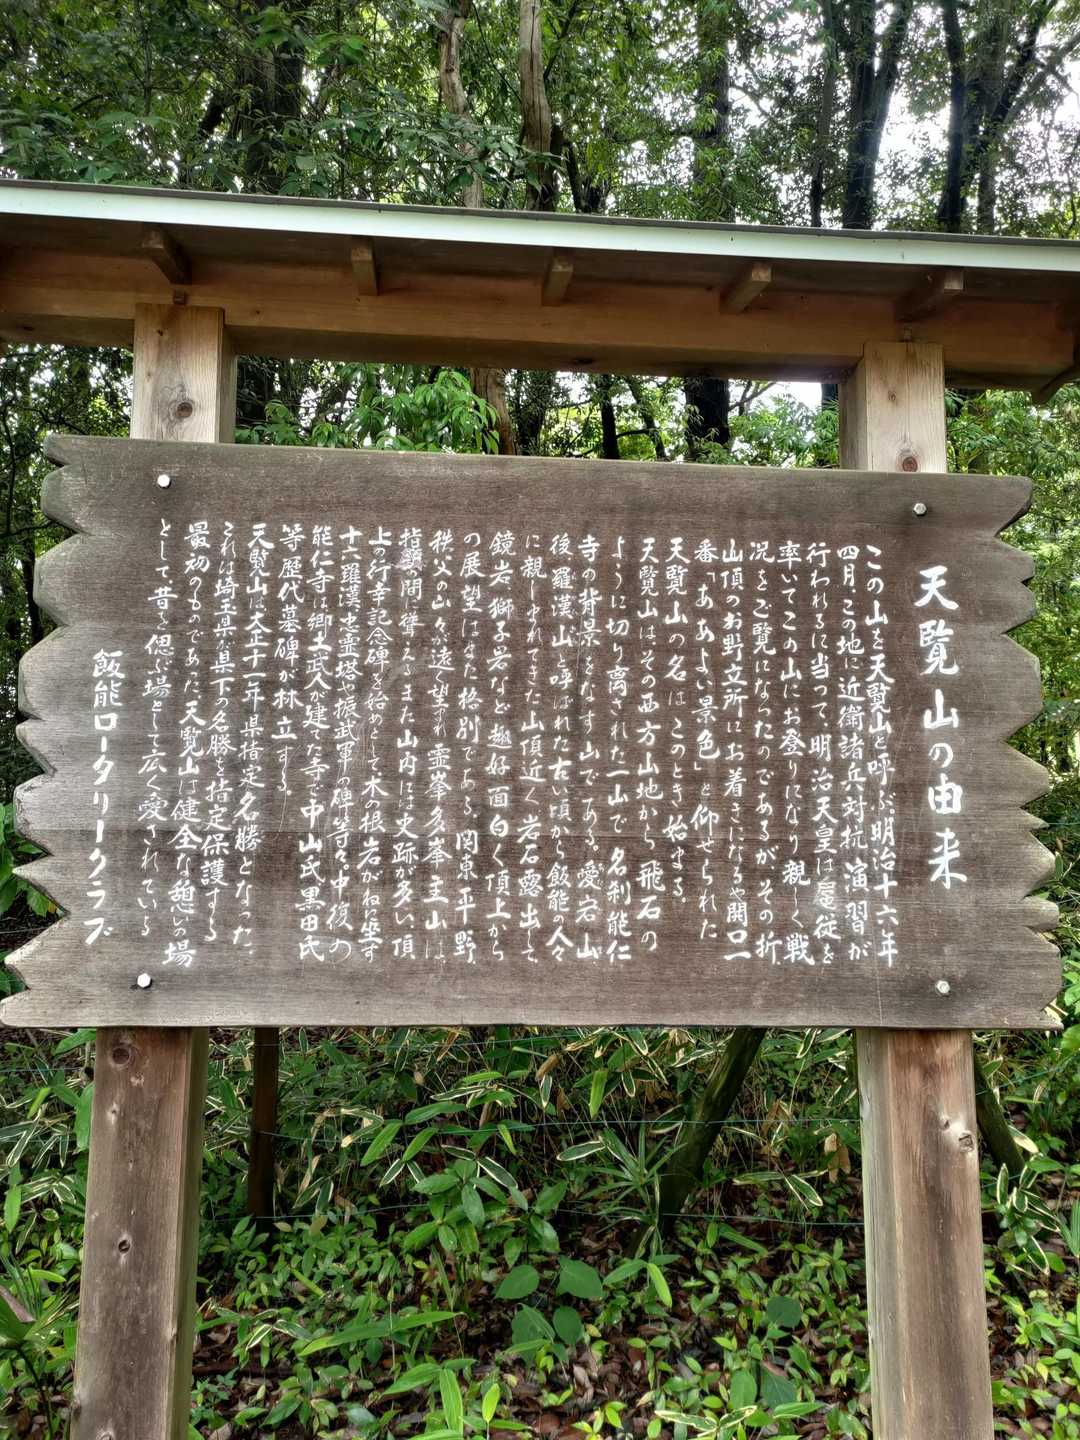 天覧山の由来
この山を天覧山と呼ぶ明治十六年
四月、この地に近衛諸兵対抗演習が
行われるに当って、明治天皇は扈従を
率いてこの山にお登りになり親しく戦
況をご覧になったのであるが、その折、
山頂のお野立所にお着きになるや開口一
番「ああよい景色」と仰せられた
天覧山の名はこのとき始まる。
天覧山はその西方山地から飛石の
ように切り離された一山で名刹能仁
寺の背景をなす山である。愛宕山
後羅漢山と呼ばれた古い頃から飯能の人々
に親しまれてきた山頂近く岩石露出して、
鏡岩、獅子岩など趣好面白く頂上から
の展望はまた格別である。関東平野、
秩父の山々が遠く望まれ霊峯多峯主山は、
指顧の間に聳えるまた山内には史跡が多い、頂
上の行幸記念碑を始めとして木の根岩がねに坐す
十六羅漢、忠霊塔や振武軍の碑等々中腹の
能仁寺は郷土武人が建てた寺で中山氏黒田氏
等歴代墓碑が林立する。
天覧山は大正十一年県指定名勝となった、
これは埼玉県が県下の名勝を指定保護する
最初のものであった天覧山は健全な憩いの場
として、昔を偲ぶ場として広く愛されている
飯能ロータリークラブ